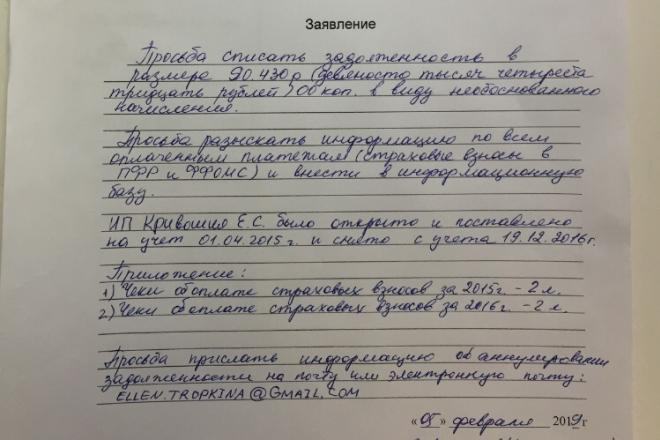 Заявление
Просьба списать задолженность в
размере 90.430 р (девяносто тысяч четыреста
тридцать рублей) 00 коп. в виду необоснованного
начисления.
Просьба разыскать информацию по всем
оплаченным платежам (страховые взносы в
ПФР и ФФОМС) и внести в информационную
базу.
ИП Кривошия Е.С. было открыто и поставлено
на учет 01.04.2015 г. и снято с учета 19.12.2016г.
Приложение:
1) Чеки об оплате страховых взносов за 2015г. - 2 л.
2) Чеки об оплате страховых взносов за 2016г. - 2 л.
Просьба прислать информацию об аннулировании
задолженности на почту или электронную почту:
ELLEN.TROPKINA@GMAIL.COM
«08» февраля 2019г